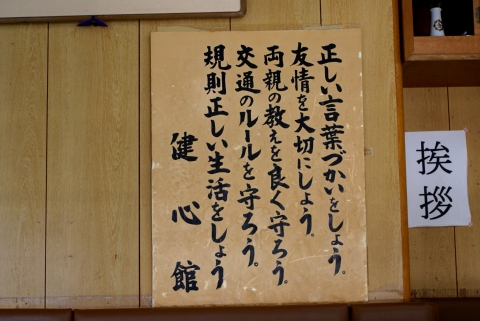 正しい言葉づかいをしよう。
友情を大切にしよう。
両親の教えを良く守ろう。
交通のルールを守ろう。
規則正しい生活をしよう
健心館
挨拶